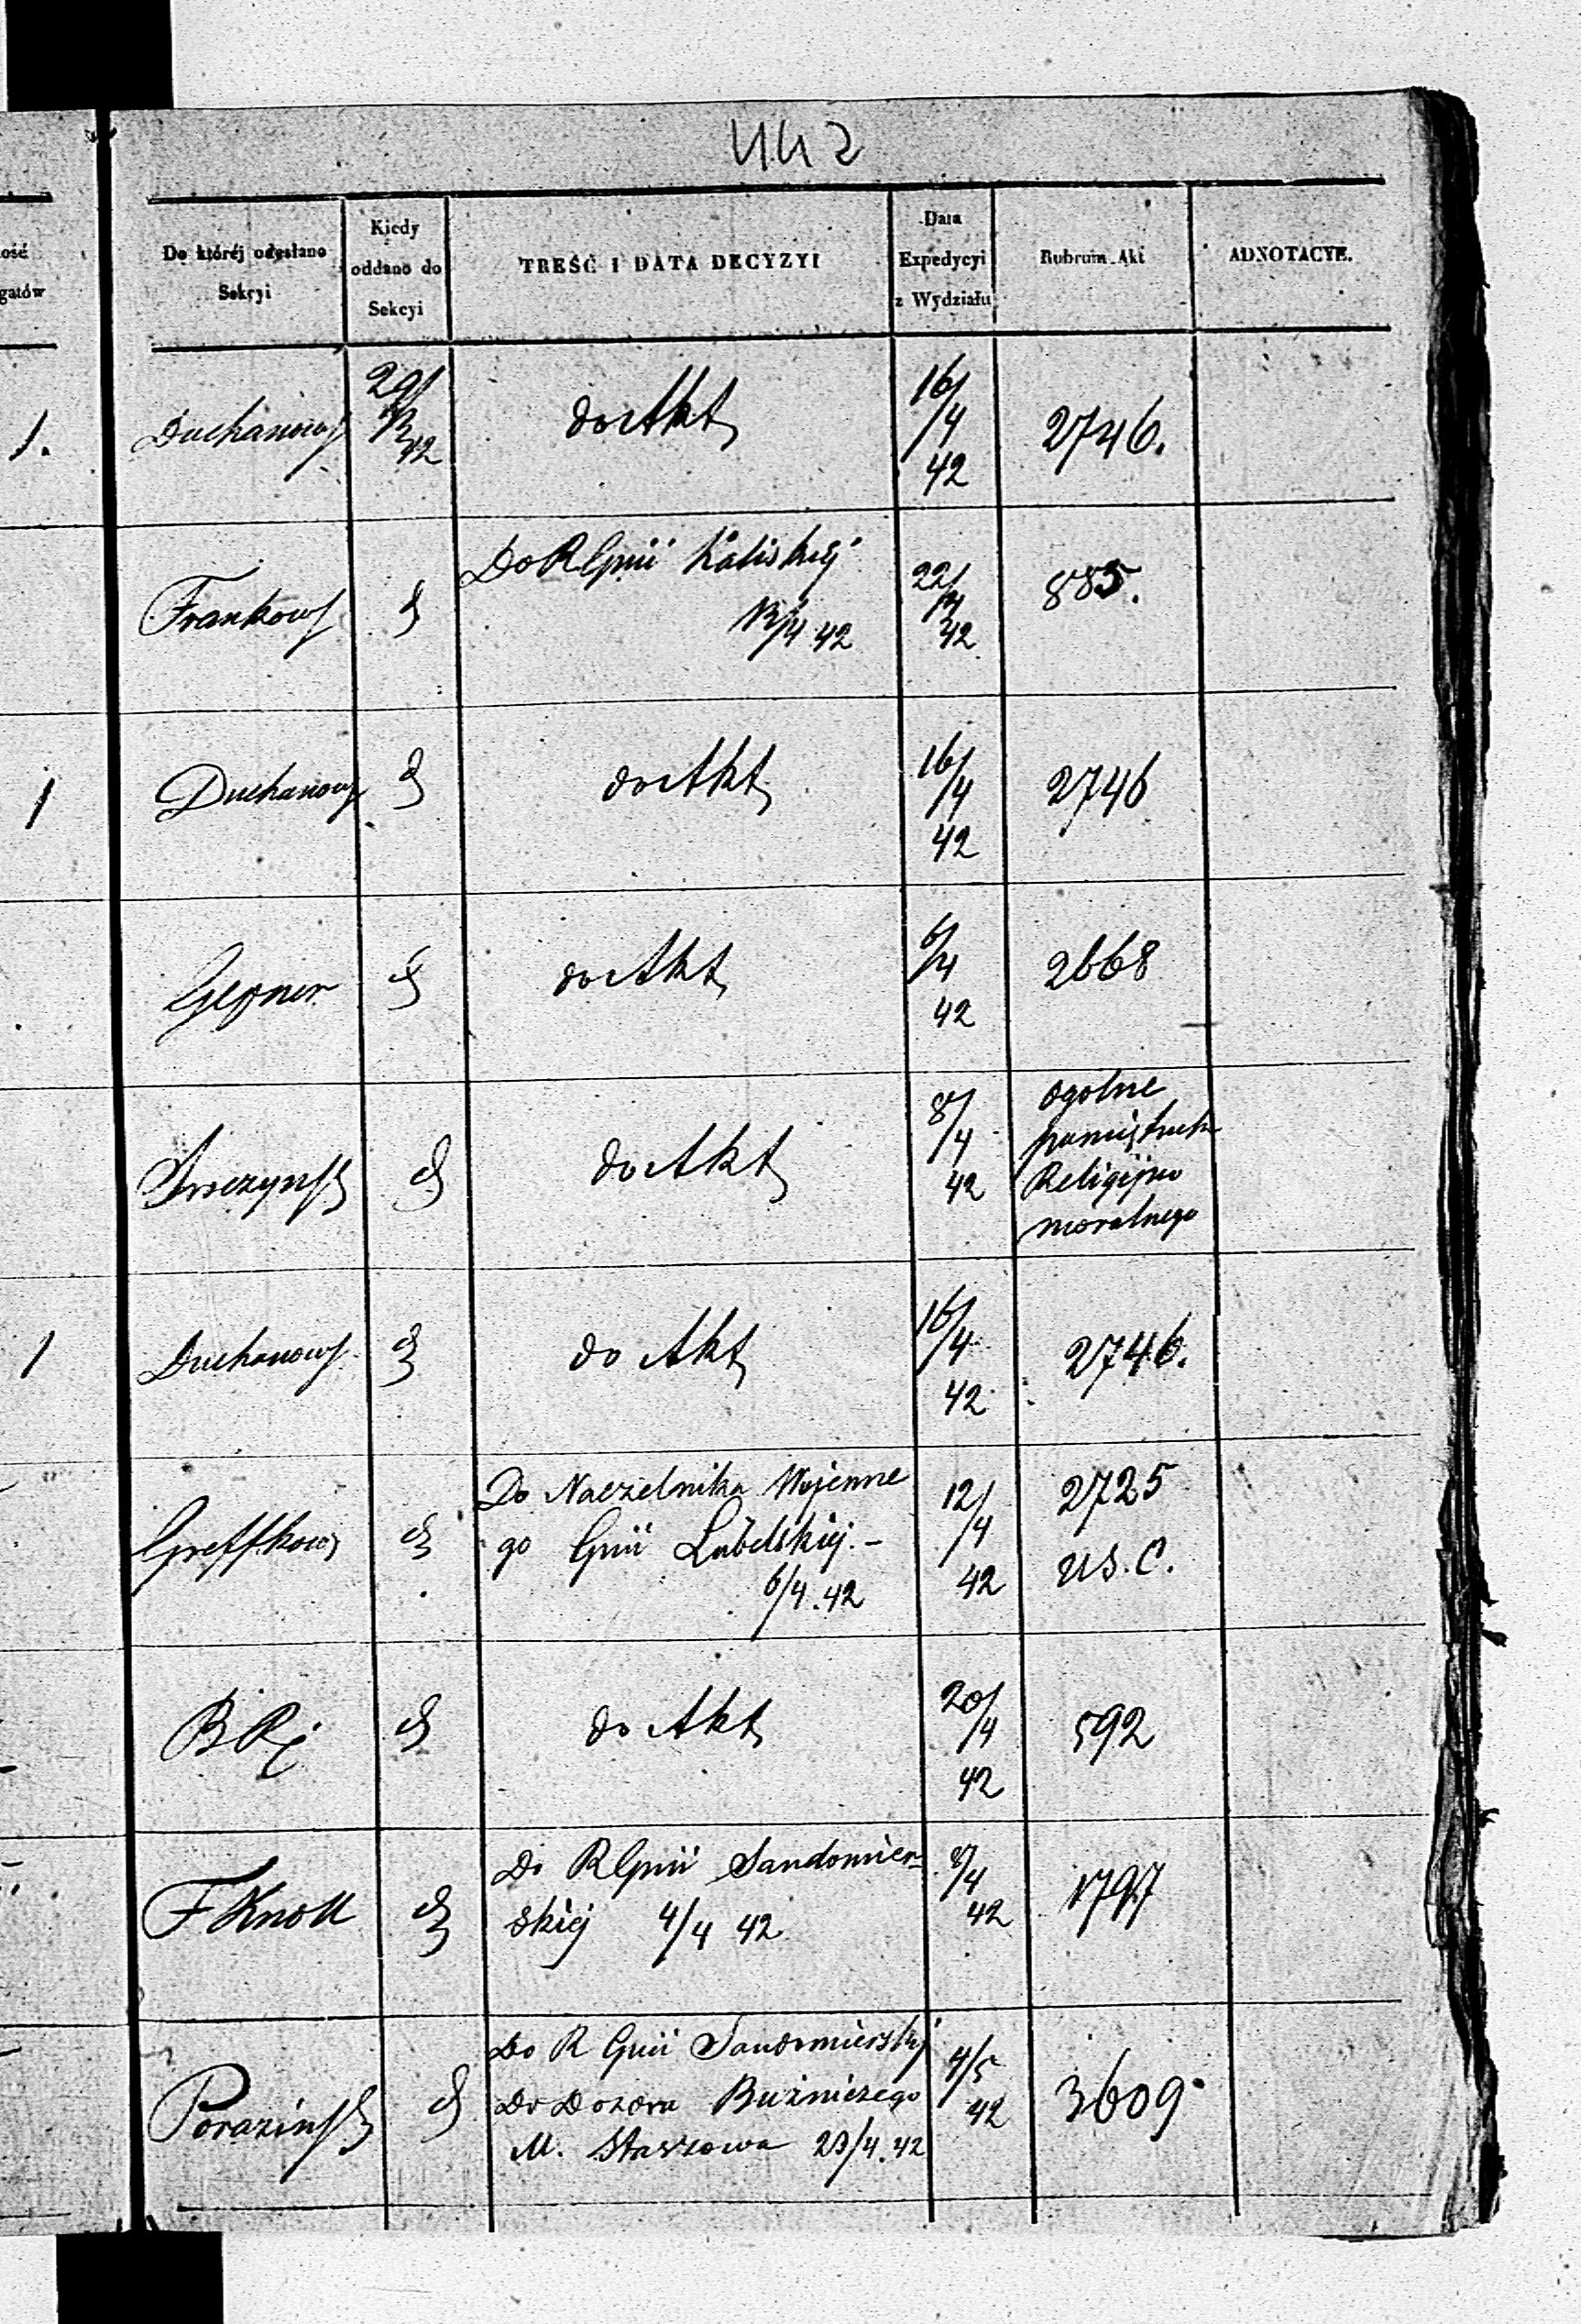 442
ość
gatów
Do któréj odesłano
Sekcyi
Kiedy
oddano do
Sekcyi
TREŚĆ I DATA DECYZYI
Data
Expedycyi
z Wydziału
Rubrum Akt
ADNOTACYE.
1. Duchanows 29/ 42 do Akt 16/4 42 2746.
Do R Gnii Kaliskiéj
Frankows 22/ 42 885.
13/4 42
1 Duchanows do Akt 16/4 42 2746
Gepner do Akt 6/4 42 2668
do Akt 8/4 42 ogolne
Religijno
moralnego
1 Duchanows do Akt 16/4 42 2746.
Do Naczelnika Wojenne
go Gnii Lubelskiej.- 12/4 42 2725
Greffkows
6/4.42
do Akt 20/4 42 592
Do R Gnii Sandomier-
F Knoll skiej 4/4 42 8/4 42 1797
Do R Gnii Sandomierskiej
Porazińs Do Dozoru Bużniczego 4/5 42 3609
M. Staszowa 23/4.42